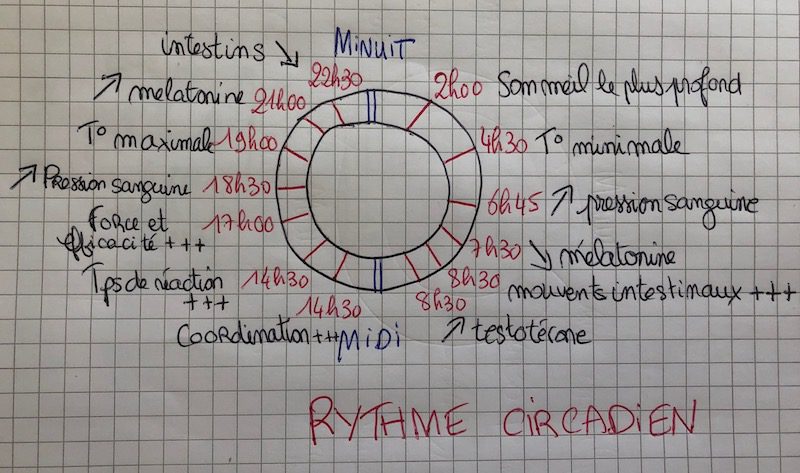 intestins ↘ MiNUiT
22h30
2h00 Sommeil le plus profond
↗ melatonine 21h00
T° maximale 19h00
4h30 T° minimale
↗ Pression sanguine 18h30
6h45 ↗ pression sanguine
force et
efficacité +++ 17h00
7h30 ↘ mélatonine
Tps de réaction
+++ 14h30
8h30 mouvents intestinaux +++
14h30
8h30
Coordination +++ MiDi
↗ testotécone
RYTHME CiRCADiEN